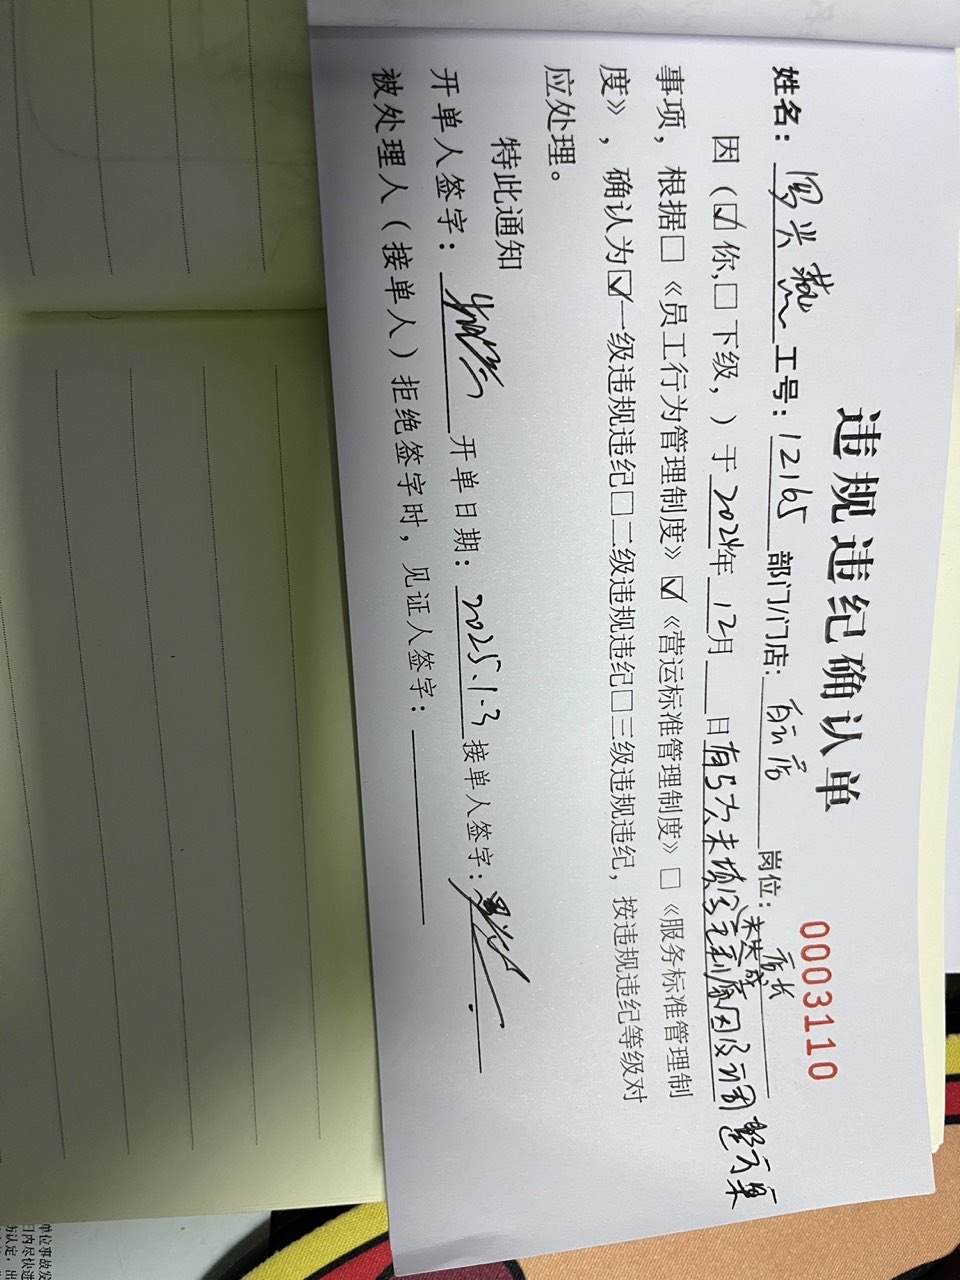 违规违纪确认单
0003110
姓名：罗兴燕 工号：12165 部门/门店：店 岗位：店长
因（☑你,□下级，）于2024年12月 日有5次未填写未达成原因及调整方案
事项，根据□《员工行为管理制度》☑《营运标准管理制度》□《服务标准管理制
度》，确认为☑一级违规违纪□二级违规违纪□三级违规违纪，按违规违纪等级对
应处理。
特此通知
开单人签字： 开单日期：2025.1.3 接单人签字：
被处理人（接单人）拒绝签字时，见证人签字：
单位事故发
日内尽快进